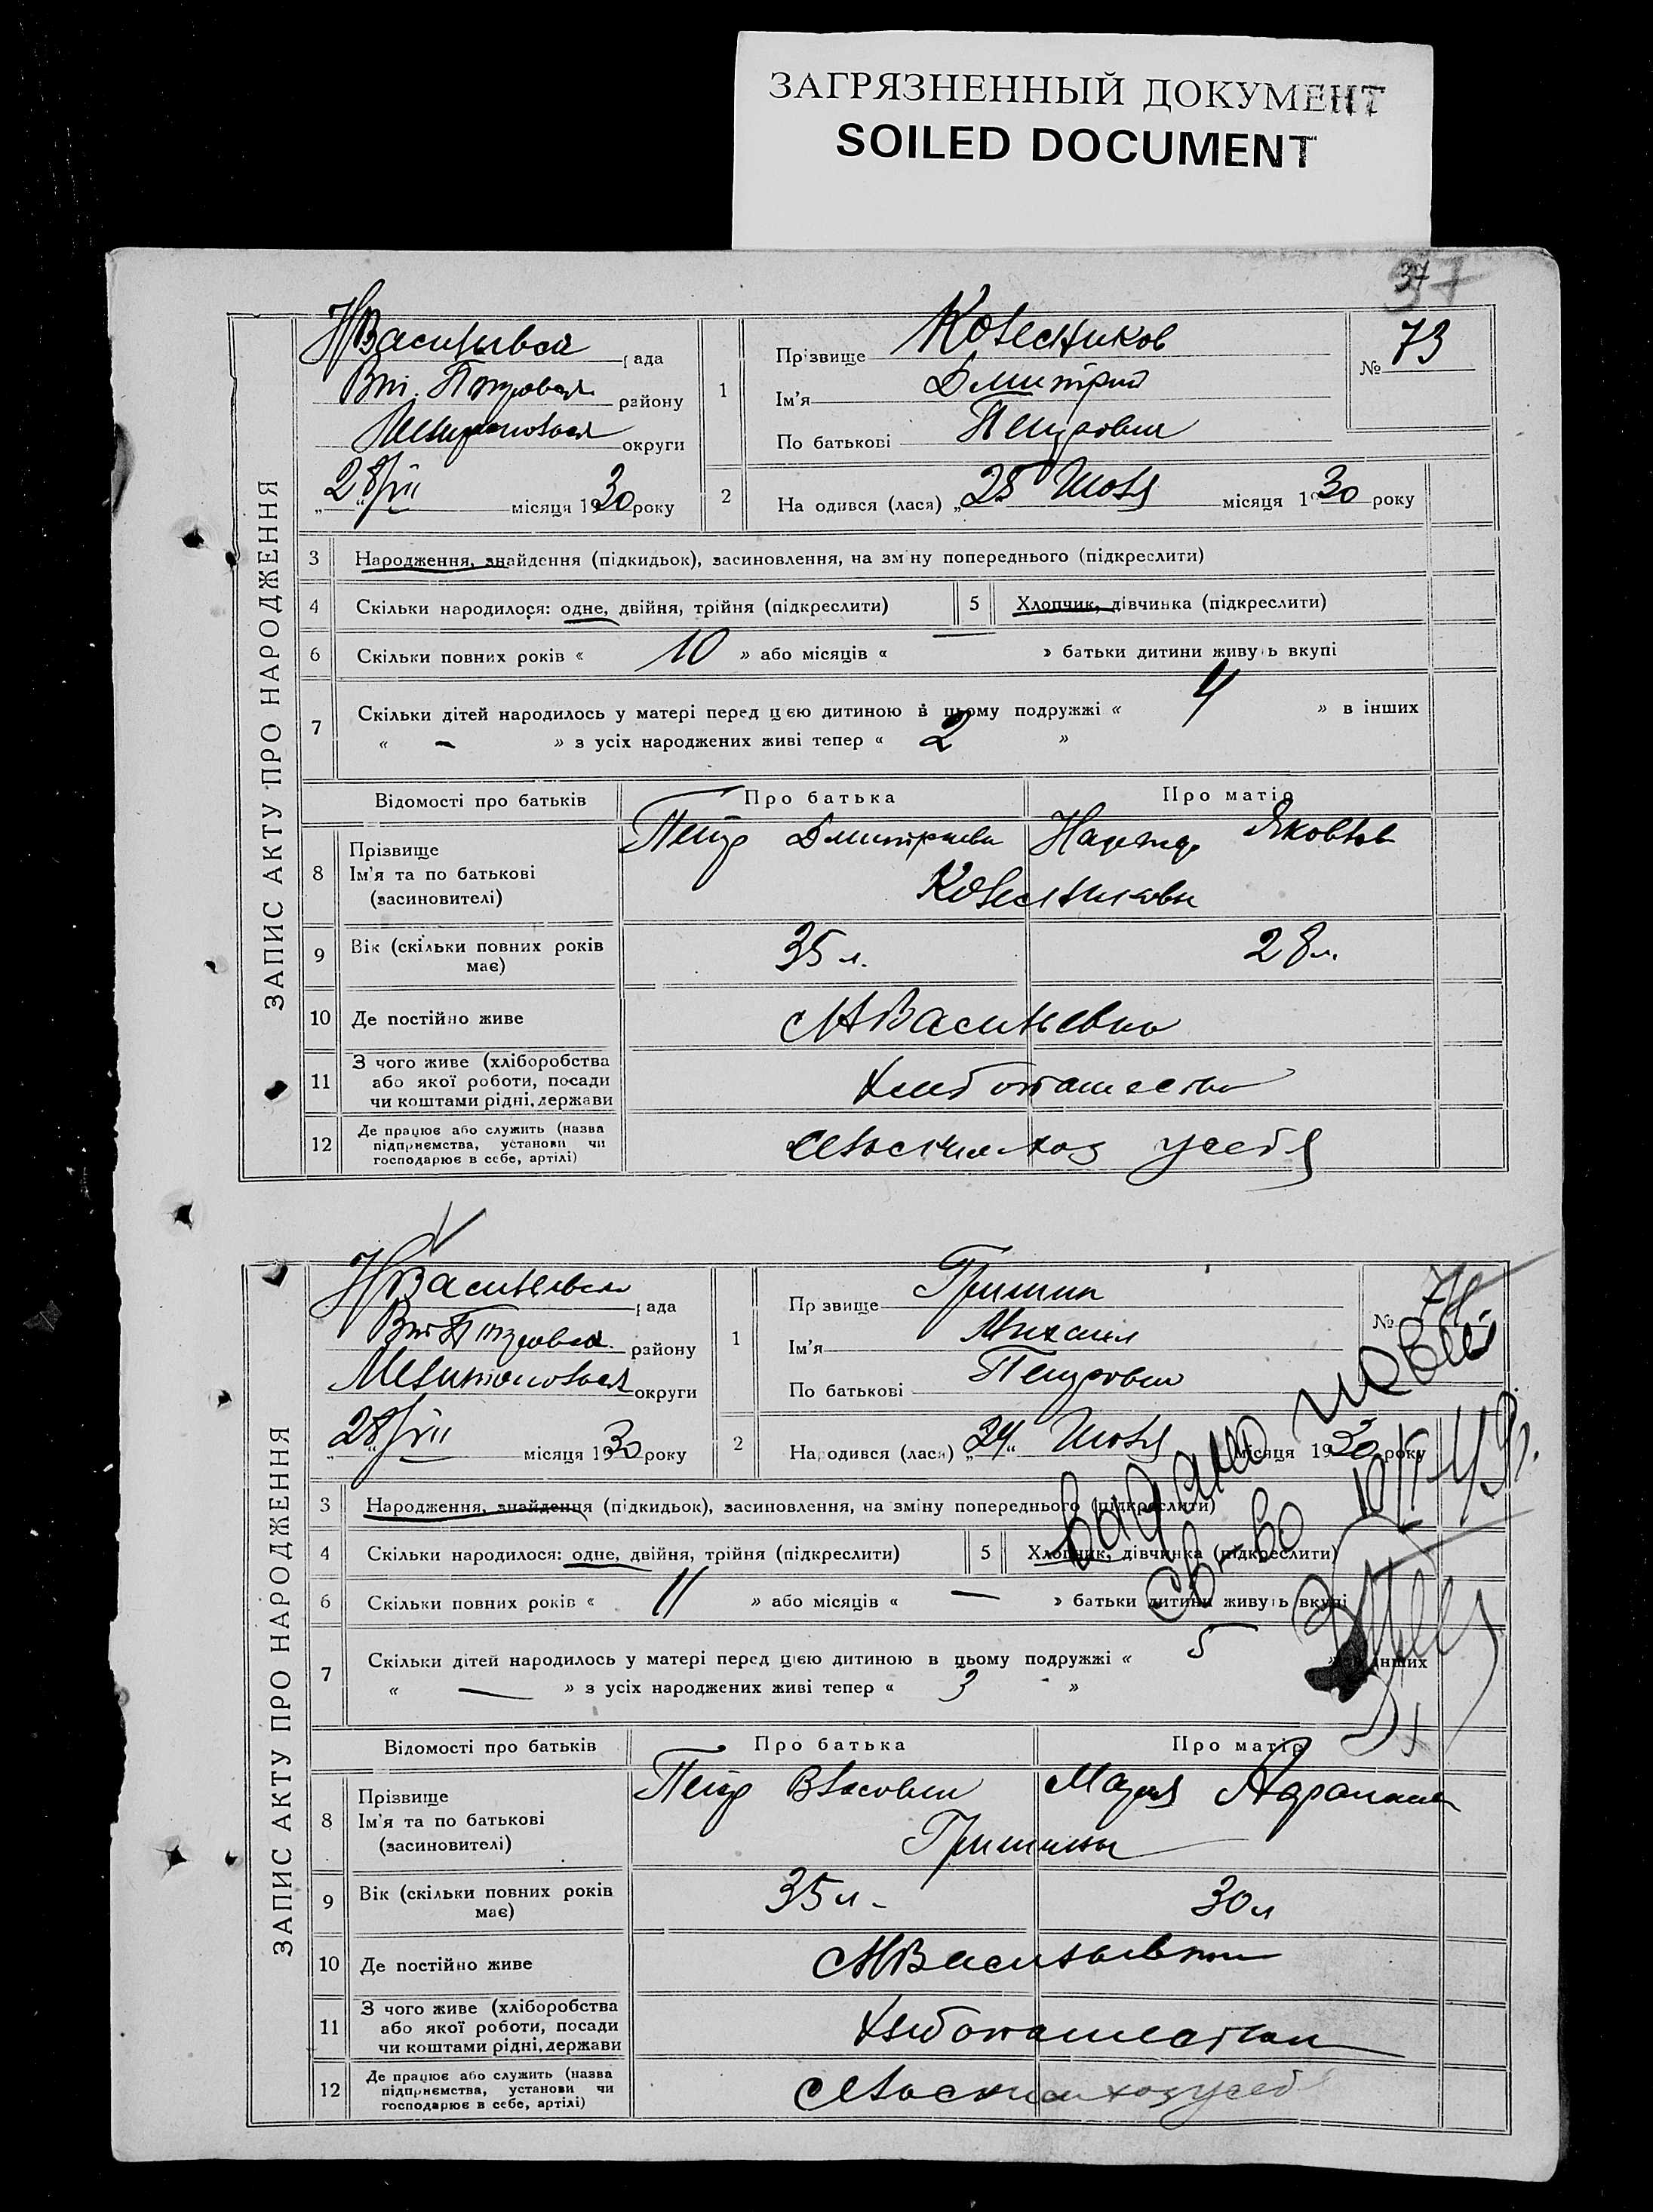 ЗАГРЯЗНЕННЫЙ ДОКУМЕНТ
SOILED DOCUMENT
37
37
ЗАПИС АКТУ ПРО НАРОДЖЕННЯ
рада
району
Мелитопольск округи
28/VII місяця 1930 року
1
Прізвище Колесников
Ім'я Дмитрий
По батькові Петрович
№ 73
2
Народився (лася) „25 Июля місяця 1930 року
3 Народження, знайдення (підкидьок), засиновлення, на зміну попереднього (підкреслити)
4 Скільки народилося: одне, двійня, трійня (підкреслити)
5 Хлопчик, дівчинка (підкреслити)
6 Скільки повних років « 10 » або місяців « » батьки дитини живуть вкупі
7 Скільки дітей народилось у матері перед цією дитиною в цьому подружжі « 4 » в інших
« - » з усіх народжених живі тепер « 2 »
Відомості про батьків
Про батька
Про матір
8 Прізвище
Ім'я та по батькові
(засиновителі)
Петр Дмитриеви Надежд Яковлев
Колесниковы
9 Вік (скільки повних років має)
35 л.
28 л.
10 Де постійно живе
НВасильевка
11 З чого живе (хліборобства
або якої роботи, посади
чи коштами рідні, держави
12 Де працює або служить (назва
підприємства, установи чи
господарює в себе, артілі)
у себя
ЗАПИС АКТУ ПРО НАРОДЖЕННЯ
рада
району
Мелитопольск округи
28/VII місяця 1930 року
1
Прізвище Гришин
Ім'я Михаил
По батькові Петрович
№ 74
2
Народився (лася) „24" Июля місяця 1930 року
Выдано новое
св-во
3 Народження, знайдення (підкидьок), засиновлення, на зміну попереднього (підкреслити)
4 Скільки народилося: одне, двійня, трійня (підкреслити)
5 Хлопчик, дівчинка (підкреслити)
6 Скільки повних років « 11 » або місяців « — » батьки дитини живуть вкупі
7 Скільки дітей народилось у матері перед цією дитиною в цьому подружжі « 5 » в інших
« — » з усіх народжених живі тепер « 3 »
Відомості про батьків
Про батька
Про матір
8 Прізвище
Ім'я та по батькові
(засиновителі)
Петр Власович Мария
Гришины
9 Вік (скільки повних років має)
35 л -
30 л
10 Де постійно живе
НВасильевка
11 З чого живе (хліборобства
або якої роботи, посади
чи коштами рідні, держави
12 Де працює або служить (назва
підприємства, установи чи
господарює в себе, артілі)